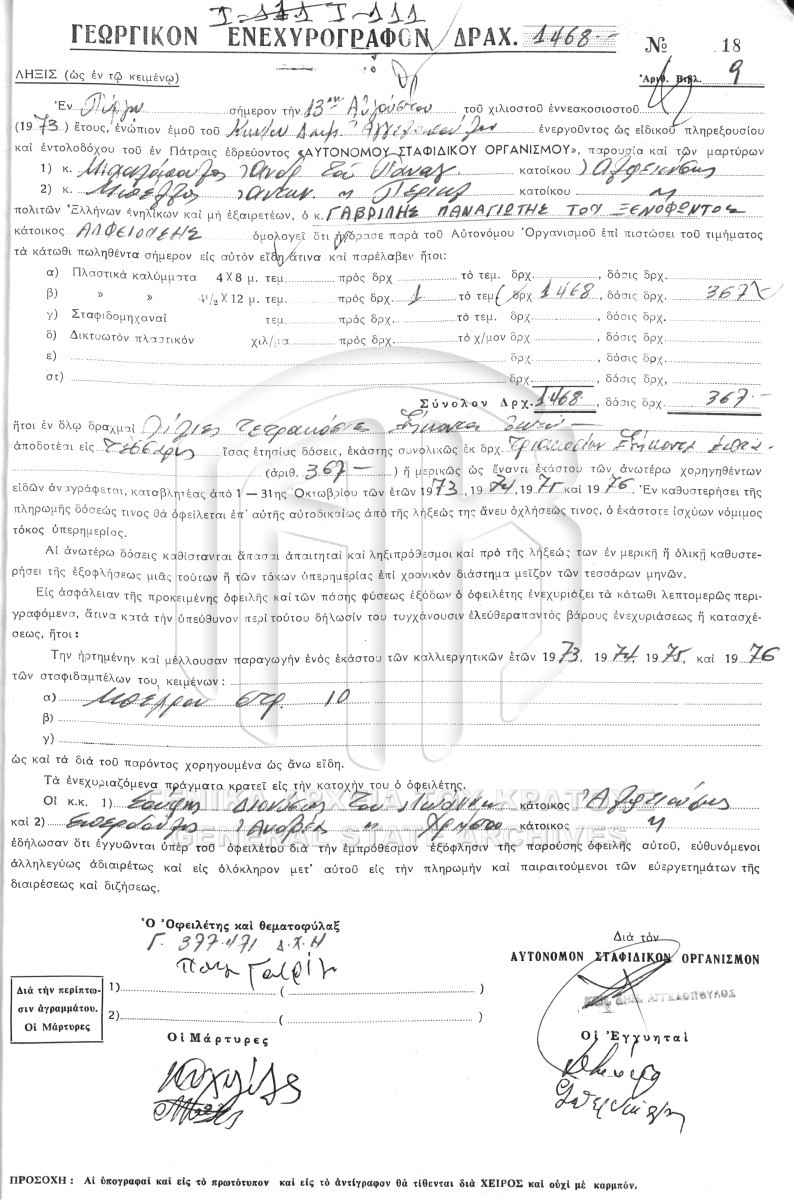 Τ-111 Τ-111
ΓΕΩΡΓΙΚΟΝ ΕΝΕΧΥΡΟΓΡΑΦΟΝ ΔΡΑΧ. 1468.-
№ 18
ΛΗΞΙΣ (ὡς ἐν τῷ κειμένῳ) Ἀριθ. Βιβλ. 9
Ἐν Πύργῳ σήμερον τὴν 13ην Αὐγούστου τοῦ χιλιοστοῦ ἐννεακοσιοστοῦ
(1973) ἔτους, ἐνώπιον ἐμοῦ τοῦ Κων/νου Δημ. Ἀγγελοπούλου ἐνεργοῦντος ὡς εἰδικοῦ πληρεξουσίου
καὶ ἐντολοδόχου τοῦ ἐν Πάτραις ἑδρεύοντος «ΑΥΤΟΝΟΜΟΥ ΣΤΑΦΙΔΙΚΟΥ ΟΡΓΑΝΙΣΜΟΥ», παρουσίᾳ καὶ τῶν μαρτύρων
1) κ. τοῦ Παναγ. κατοίκου
2) κ. κατοίκου
πολιτῶν Ἑλλήνων ἐνηλίκων καὶ μὴ ἐξαιρετέων, ὁ κ. ΓΑΒΡΙΛΗΣ ΠΑΝΑΓΙΩΤΗΣ ΤΟΥ ΞΕΝΟΦΩΝΤΟΣ
κάτοικος ΑΛΦΕΙΟΥΣΗΣ ὁμολογεῖ ὅτι ἠγόρασε παρὰ τοῦ Αὐτονόμου Ὀργανισμοῦ ἐπὶ πιστώσει τοῦ τιμήματος
τὰ κάτωθι πωληθέντα σήμερον εἰς αὐτὸν εἴδη ἅτινα καὶ παρέλαβεν ἤτοι:
α) Πλαστικὰ καλύμματα 4Χ8 μ. τεμ. πρὸς δρχ τὸ τεμ. δρχ. , δόσις δρχ.
β) » » 4 1/2 Χ 12 μ. τεμ. πρὸς δρχ. 1 τὸ τεμ. δρχ 1468 , δόσις δρχ. 367
γ) Σταφιδομηχαναὶ τεμ. πρὸς δρχ. τὸ τεμ. δρχ. , δόσις δρχ.
δ) Δικτυωτὸν πλαστικὸν χιλ/μα πρὸς δρχ. τὸ χ/μον δρχ. , δόσις δρχ.
ε) δρχ. , δόσις δρχ.
στ) δρχ. , δόσις δρχ,
Σύνολον Δρχ. 1468 , δόσις δρχ. 367.-
ἤτοι ἐν ὅλῳ δραχμαὶ Χίλιες τετρακόσιες ἑξήκοντα ὀκτώ -
ἀποδοτέαι εἰς τέσσαρις ἴσας ἐτησίας δόσεις, ἑκάστης συνολικῶς ἐκ δρχ. Τριακοσίων ἑξήκοντα ἑπτά-
(ἀριθ. 367 -) ἢ μερικῶς ὡς ἔναντι ἑκάστου τῶν ἀνωτέρω χορηγηθέντων
εἰδῶν ἀναγράφεται, καταβλητέας ἀπὸ 1 — 31ης Ὀκτωβρίου τῶν ἐτῶν 1973, 1974, 1975 καὶ 1976. Ἐν καθυστερήσει τῆς
πληρωμῆς δόσεώς τινος θὰ ὀφείλεται ἐπ' αὐτῆς αὐτοδικαίως ἀπὸ τῆς λήξεώς της ἄνευ ὀχλήσεώς τινος, ὁ ἑκάστοτε ἰσχύων νόμιμος
τόκος ὑπερημερίας.
Αἱ ἀνωτέρω δόσεις καθίστανται ἅπασαι ἀπαιτηταὶ καὶ ληξιπρόθεσμοι καὶ πρὸ τῆς λήξεώς των ἐν μερικῇ ἢ ὁλικῇ καθυστε-
ρήσει τῆς ἐξοφλήσεως μιᾶς τούτων ἢ τῶν τόκων ὑπερημερίας ἐπὶ χρονικὸν διάστημα μεῖζον τῶν τεσσάρων μηνῶν.
Εἰς ἀσφάλειαν τῆς προκειμένης ὀφειλῆς καὶ τῶν πάσης φύσεως ἐξόδων ὁ ὀφειλέτης ἐνεχυριάζει τὰ κάτωθι λεπτομερῶς περι-
γραφόμενα, ἅτινα κατὰ τὴν ὑπεύθυνον περὶ τούτου δήλωσίν του τυγχάνουσιν ἐλεύθερα παντὸς βάρους ἐνεχυριάσεως ἢ κατασχέ-
σεως, ἤτοι:
Τὴν ἠρτημένην καὶ μέλλουσαν παραγωγὴν ἑνὸς ἑκάστου τῶν καλλιεργητικῶν ἐτῶν 1973, 1974, 1975, καὶ 1976
τῶν σταφιδαμπέλων του κειμένων:
α) στρ. 10
β)
γ)
ὡς καὶ τὰ διὰ τοῦ παρόντος χορηγουμένα ὡς ἄνω εἴδη.
Τὰ ἐνεχυριαζόμενα πράγματα κρατεῖ εἰς τὴν κατοχήν του ὁ ὀφειλέτης.
ΓΕΝΙΚΑ ΑΡΧΕΙΑ ΤΟΥ ΚΡΑΤΟΥΣ
Οἱ κ.κ. 1) Διονύσιος τοῦ κάτοικος
GENERAL STATE ARCHIVES
καὶ 2) Χρήστου κάτοικος
ἐδήλωσαν ὅτι ἐγγυῶνται ὑπὲρ τοῦ ὀφειλέτου διὰ τὴν ἐμπρόθεσμον ἐξόφλησιν τῆς παρούσης ὀφειλῆς αὐτοῦ, εὐθυνόμενοι
ἀλληλεγύως ἀδιαιρέτως καὶ εἰς ὁλόκληρον μετ' αὐτοῦ εἰς τὴν πληρωμὴν καὶ παραιτούμενοι τῶν εὐεργετημάτων τῆς
διαιρέσεως καὶ διζήσεως.
Ὁ Ὀφειλέτης καὶ θεματοφύλαξ
Γ. 377471 Δ.Χ.Η
Διὰ τὸν
ΑΥΤΟΝΟΜΟΝ ΣΤΑΦΙΔΙΚΟΝ ΟΡΓΑΝΙΣΜΟΝ
ΚΩΝ. ΔΗΜ. ΑΓΓΕΛΟΠΟΥΛΟΣ
Διὰ τὴν περίπτω-
σιν ἀγραμμάτου.
Οἱ Μάρτυρες
1) ( )
2) ( )
Οἱ Μάρτυρες
Οἱ Ἐγγυηταὶ
ΠΡΟΣΟΧΗ : Αἱ ὑπογραφαὶ καὶ εἰς τὸ πρωτότυπον καὶ εἰς τὸ ἀντίγραφον θὰ τίθενται διὰ ΧΕΙΡΟΣ καὶ οὐχὶ μὲ καρμπόν.